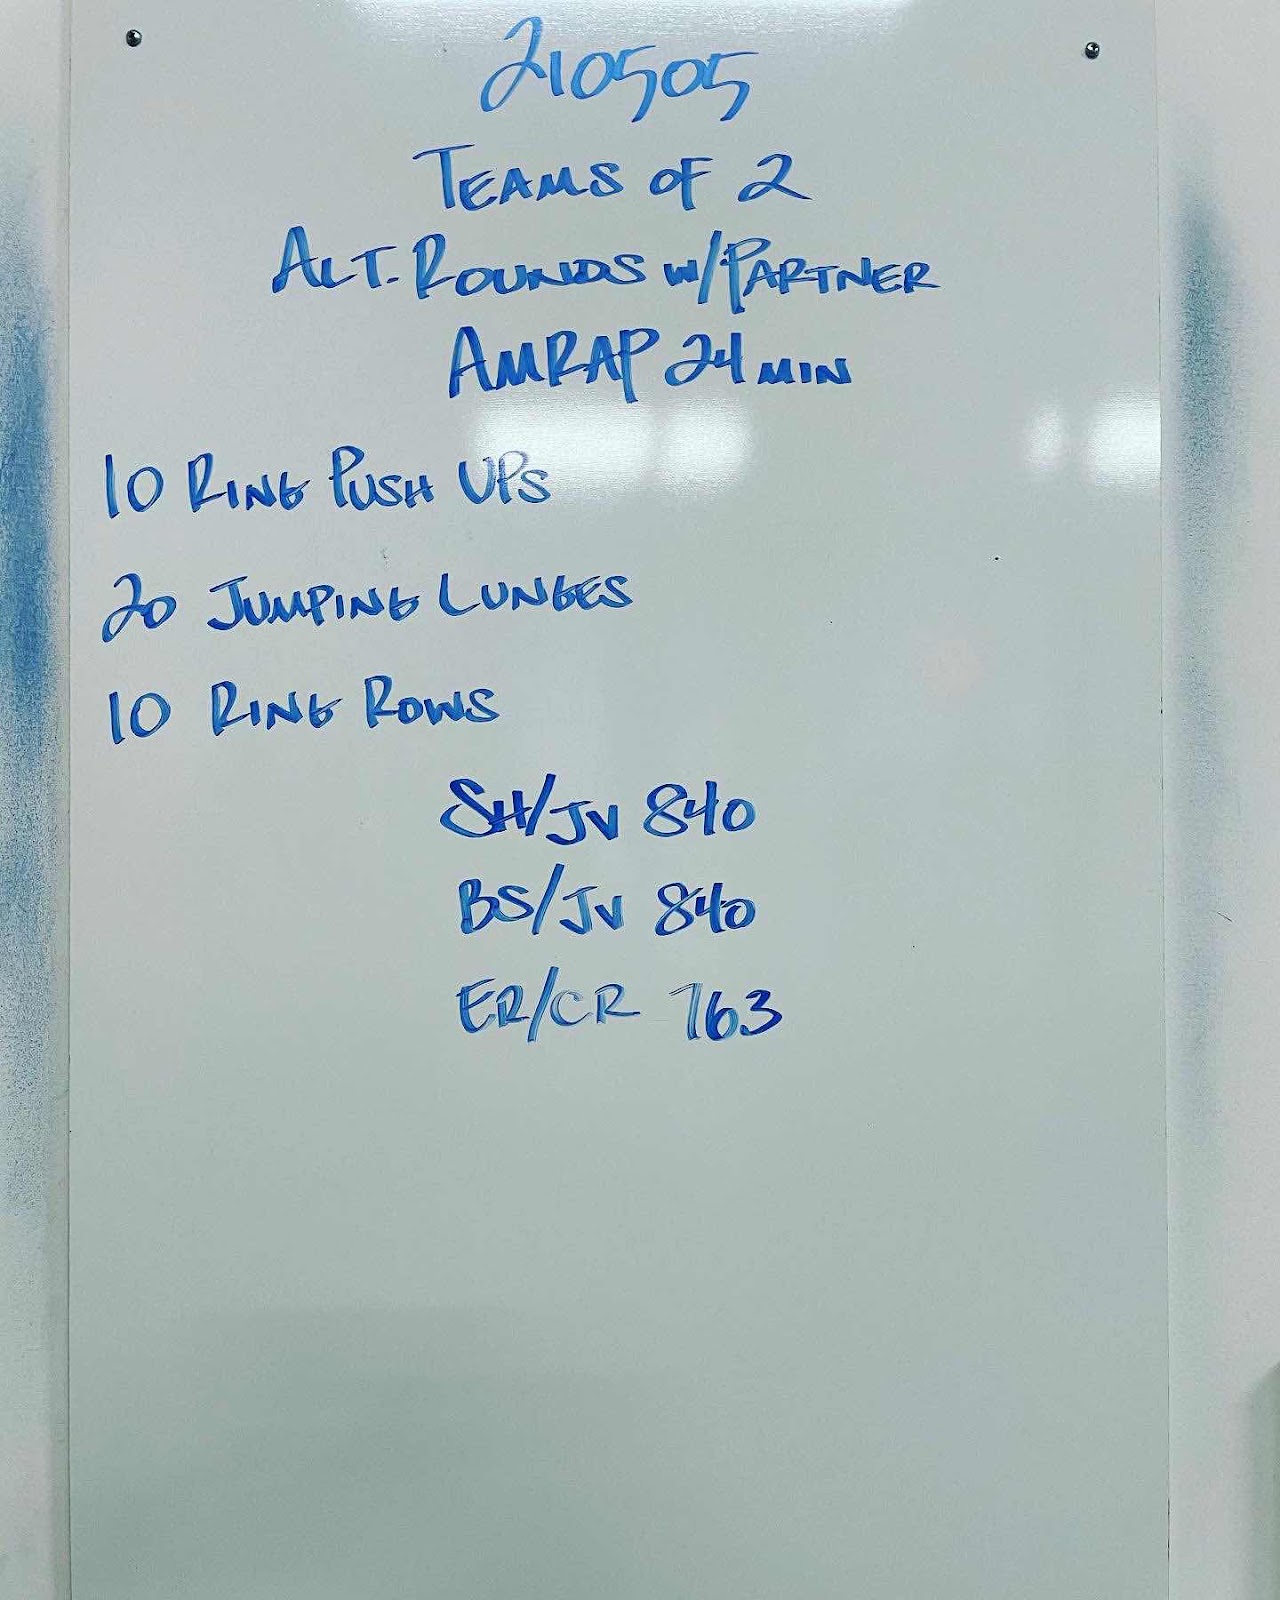 210505
TEAMS OF 2
ALT. ROUNDS W/PARTNER
AMRAP 24 MIN
10 RING PUSH UPS
20 JUMPING LUNGES
10 RING ROWS
SH/JV 840
BS/JV 840
ER/CR 763